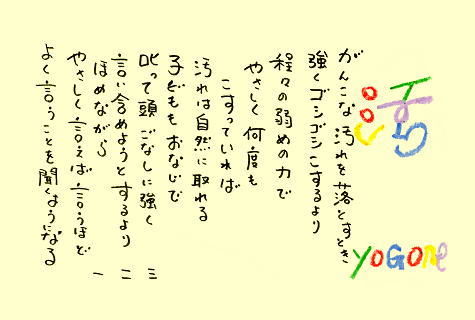 汚
YOGORe
がんこな汚れを落とすとき
強くゴシゴシこするより
程々の弱めの力で
やさしく何度も
こすっていれば
汚れは自然に取れる
子どももおなじで
叱って頭ごなしに強く
言い含めようとするより
ほめながら
やさしく言えば言うほど
よく言うことを聞くようになる
一 二 三